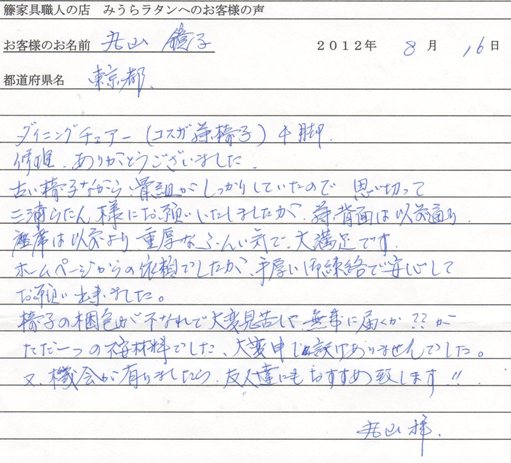 籐家具職人の店　みうらラタンへのお客様の声
お客様のお名前　丸山 子　２０１２年　８　月　１６　日
都道府県名　東京都.
ダイニングチェアー（コスガ籐椅子）4脚.
修理、ありがとうございました.
古い椅子ながら、骨組がしっかりしていたので　思い切って
三浦らたん様にお願いいたしましたが、籐背面は以前通り、
座席は以前より重厚なふんい気で、大満足です.
ホームページからの依頼でしたが、手厚い御連絡で安心して
お願い出来ました。
椅子の梱包が不なれで大変見苦しく無事に届くか??が
ただ一つの 材料でした、大変申し訳けありませんでした。
又、機会が有りましたら、友人達にもおすすめ致します!!
丸山